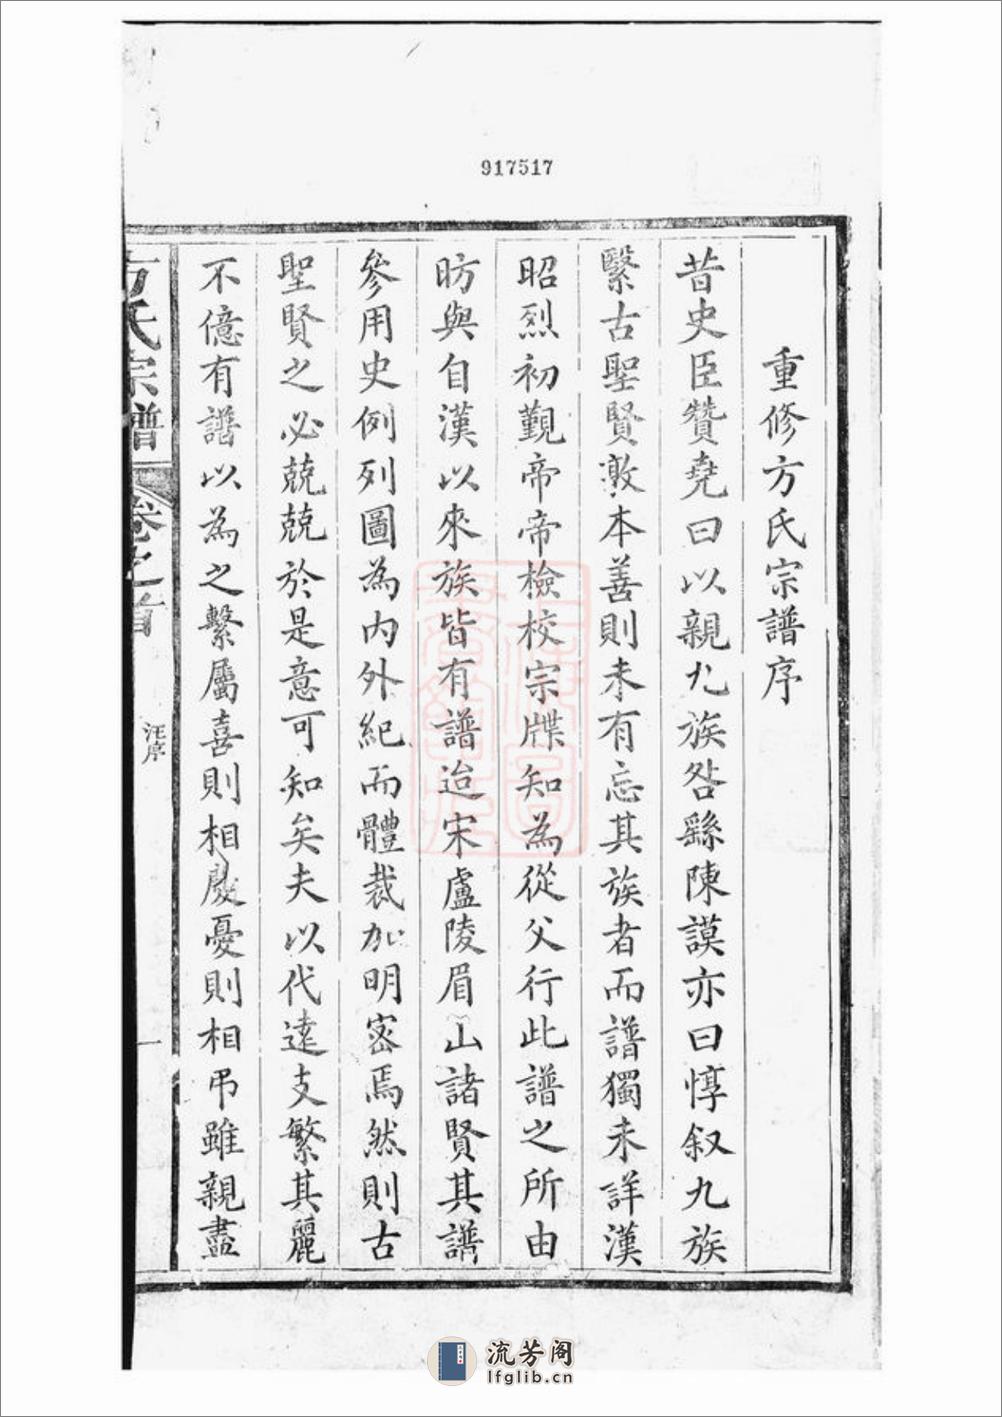 917517
重修方氏宗譜序
昔史臣贊堯曰以親九族咎繇陳謨亦曰惇叙九族
繄古聖賢敦本善則未有忘其族者而譜獨未詳漢
昭烈初覲帝帝檢校宗牒知為從父行此譜之所由
昉與自漢以來族皆有譜迨宋盧陵眉山諸賢其譜
參用史例列圖為內外紀而體裁加明密焉然則古
聖賢之必兢兢於是意可知矣夫以代遠支繁其麗
不億有譜以為之繫屬喜則相慶憂則相弔雖親盡
方氏宗譜
卷之首
汪序
一
流芳阁
lfglib.cn